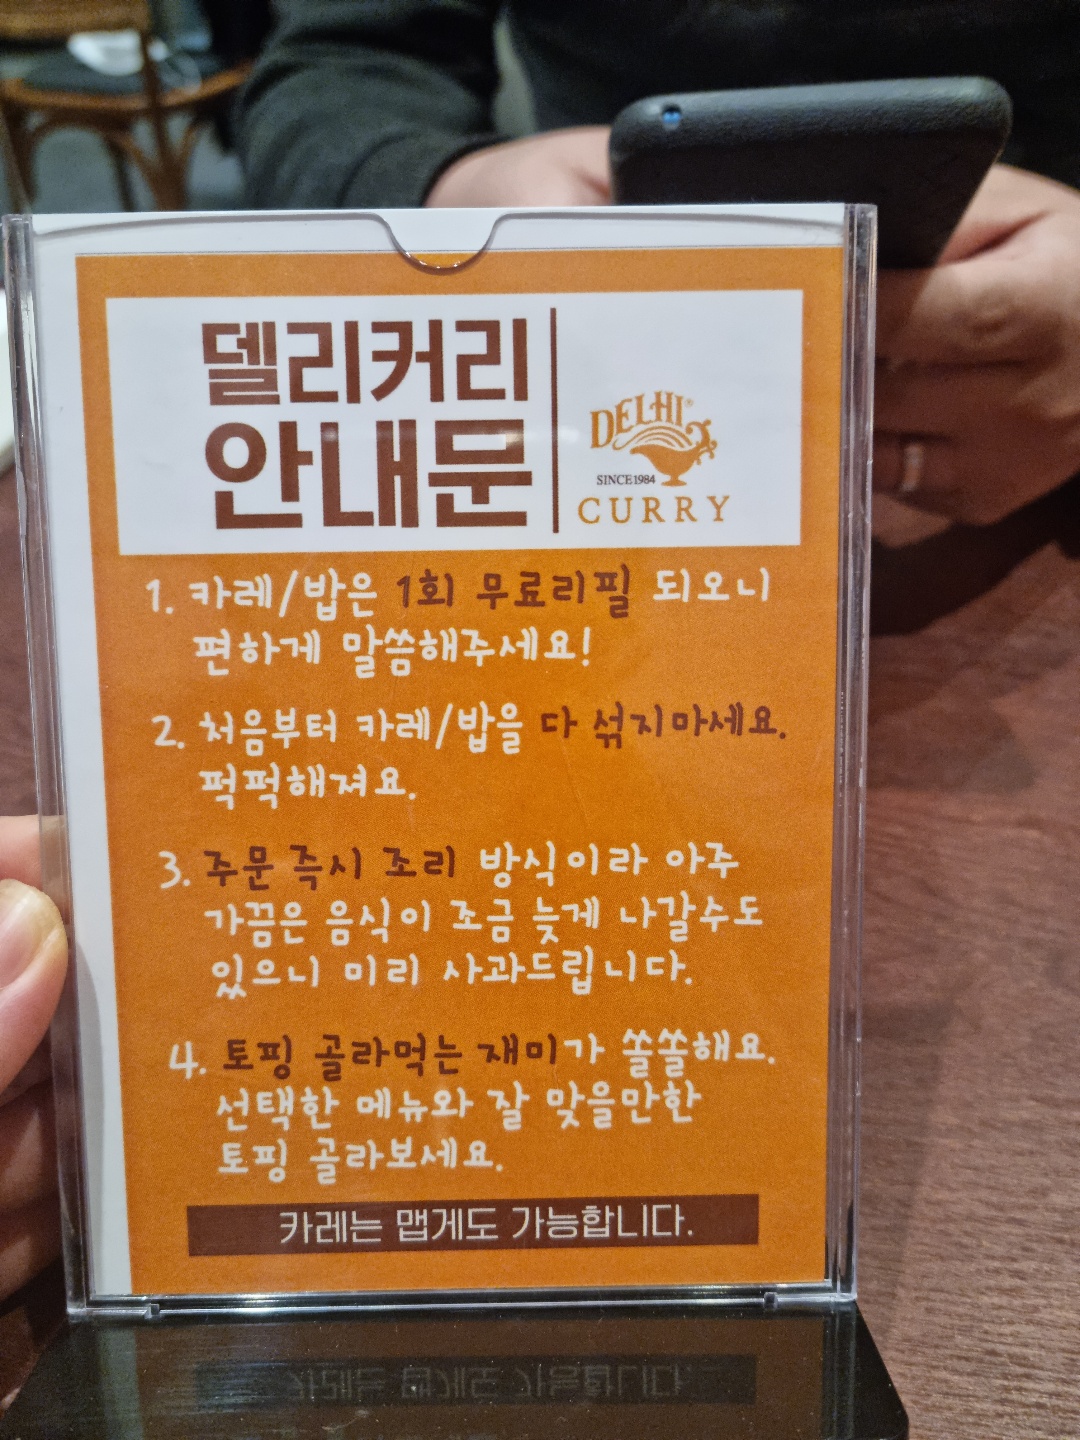 델리커리
안내문
DELHI®
SINCE 1984
CURRY
1. 카레/밥은 1회 무료리필 되오니
편하게 말씀해주세요!
2. 처음부터 카레/밥을 다 섞지마세요.
퍽퍽해져요.
3. 주문 즉시 조리 방식이라 아주
가끔은 음식이 조금 늦게 나갈수도
있으니 미리 사과드립니다.
4. 토핑 골라먹는 재미가 쏠쏠해요.
선택한 메뉴와 잘 맞을만한
토핑 골라보세요.
카레는 맵게도 가능합니다.